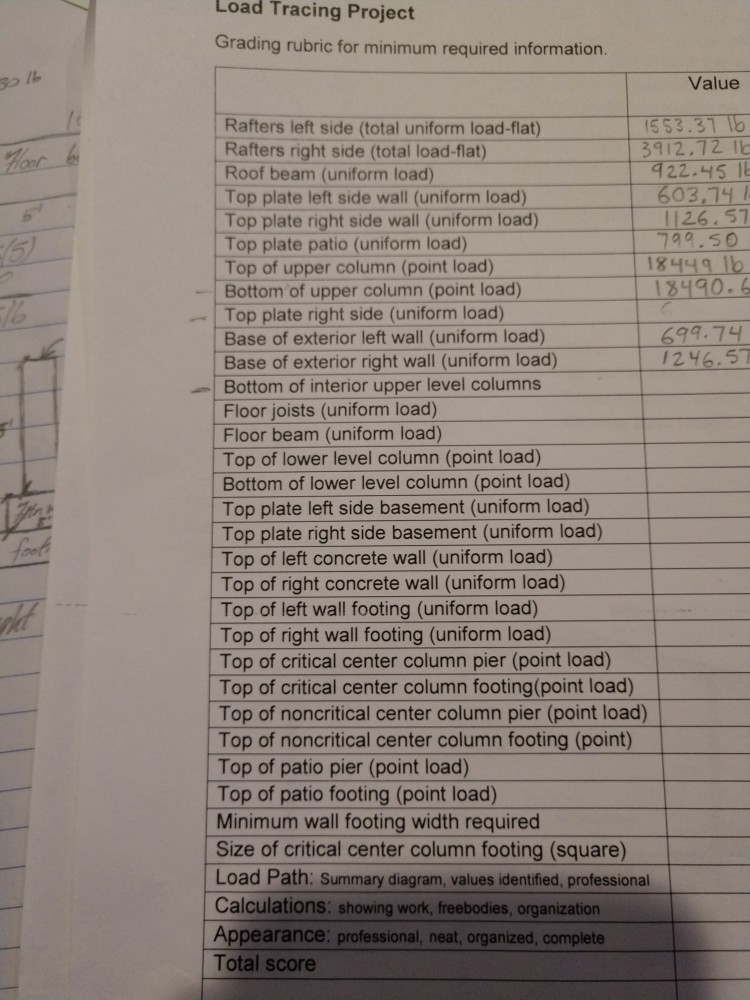 Load Tracing Project
Grading rubric for minimum required information.
Value
30 lb
Rafters left side (total uniform load-flat) 1553.37 lb
Rafters right side (total load-flat) 3912.72 lb
Roof beam (uniform load) 922.45 lb
Top plate left side wall (uniform load) 603.74
Top plate right side wall (uniform load) 1126.57
Top plate patio (uniform load) 799.50
Top of upper column (point load) 18449 lb
Bottom of upper column (point load) 18490.6
Top plate right side (uniform load)
Base of exterior left wall (uniform load) 699.74
Base of exterior right wall (uniform load) 1246.57
Bottom of interior upper level columns
Floor joists (uniform load)
Floor beam (uniform load)
Top of lower level column (point load)
Bottom of lower level column (point load)
Top plate left side basement (uniform load)
Top plate right side basement (uniform load)
Top of left concrete wall (uniform load)
Top of right concrete wall (uniform load)
Top of left wall footing (uniform load)
Top of right wall footing (uniform load)
Top of critical center column pier (point load)
Top of critical center column footing(point load)
Top of noncritical center column pier (point load)
Top of noncritical center column footing (point)
Top of patio pier (point load)
Top of patio footing (point load)
Minimum wall footing width required
Size of critical center column footing (square)
Load Path: Summary diagram, values identified, professional
Calculations: showing work, freebodies, organization
Appearance: professional, neat, organized, complete
Total score
Floor